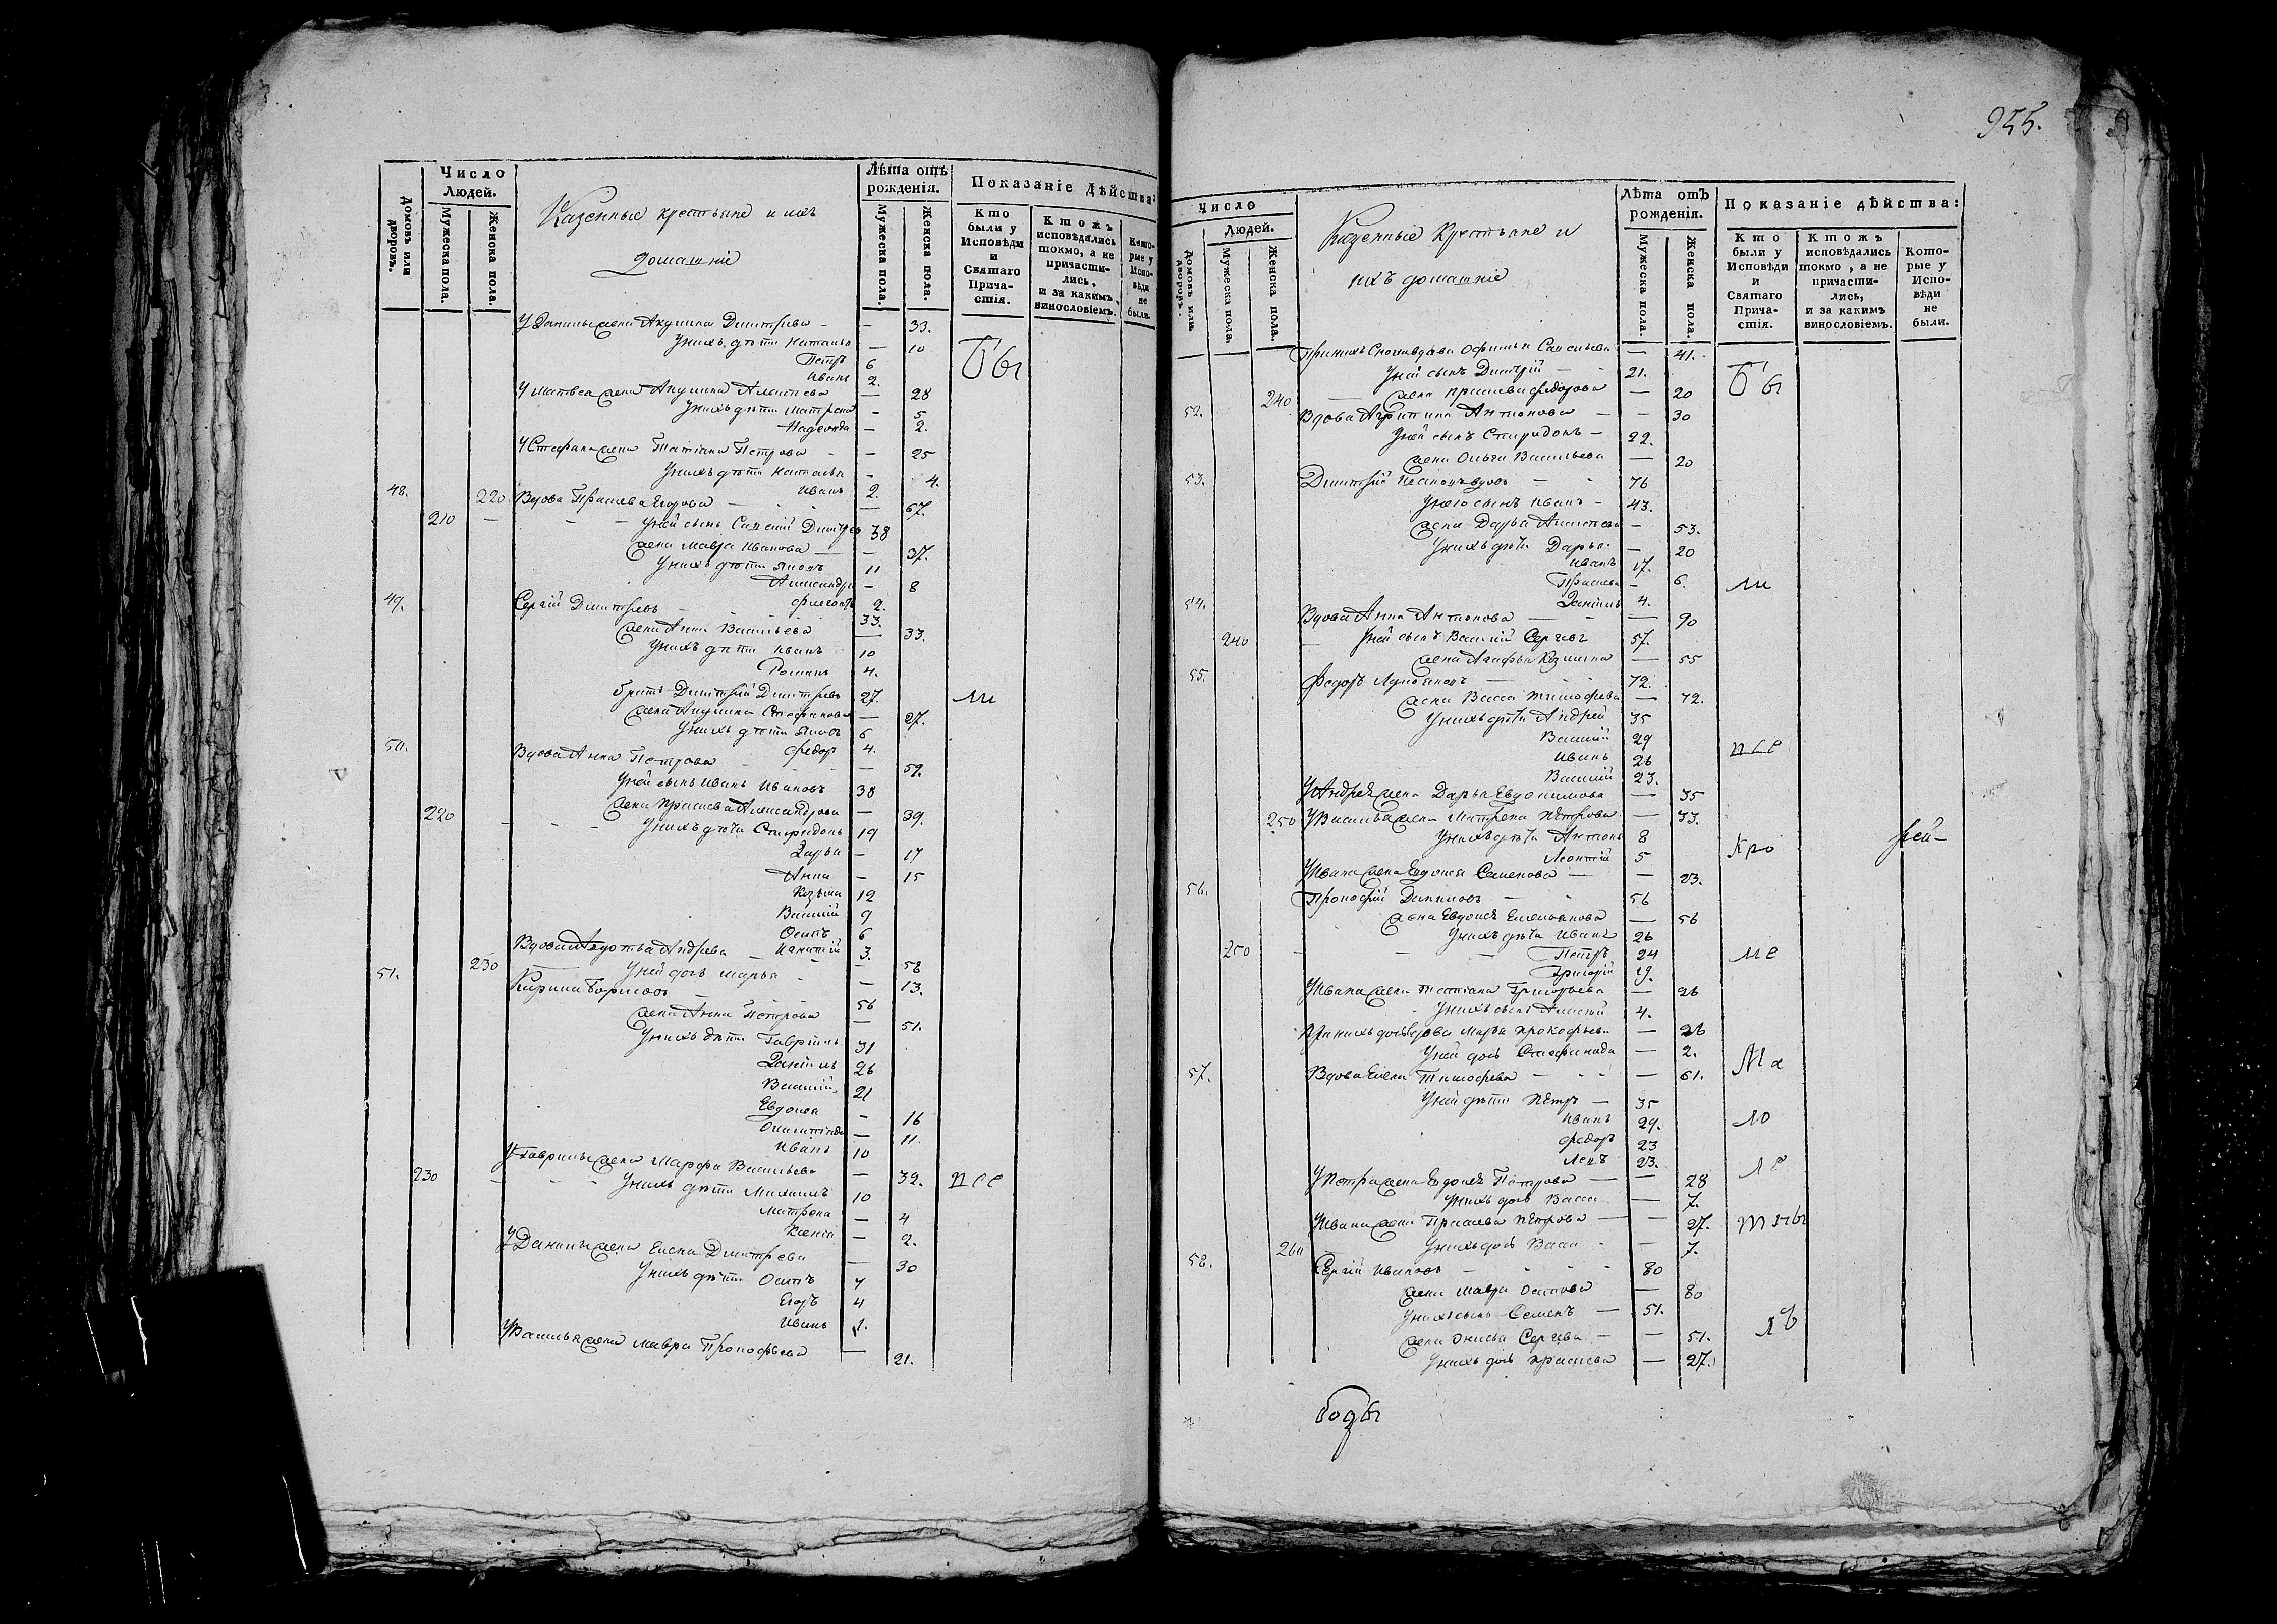 955.
Число
Людей.
Домовъ или дворовъ.
Мужеска пола.
Женска пола.
Казенные крестьяне и ихъ
домашніе
Лѣта отъ
рожденія.
Мужеска пола.
Женска пола.
Показаніе дѣйства:
Кто были у Исповѣди и Святаго Причастія.
Кто жъ исповѣдались токмо, а не причастились, и за какимъ винословіемъ.
Которые у Исповѣди не были.
У Данилы жена Акулина Дмитрева — 33.
У нихъ дѣти Наталья — 10
Петръ 6
Иванъ 2.
Бы
У Матвея жена Акулина — 28
У нихъ дѣти Матрена — 5
Надежда — 2.
У Стефана жена Татіана Петрова — 25
У нихъ дѣти Наталья — 4.
Иванъ 2.
48. 220 Вдова Прасковья Егорова — 67.
210 У ней сынъ Дмитрев 38
жена Мавра Иванова — 37.
У нихъ дѣти 11
Александра — 8
2.
49. Сергій Дмитревъ 33.
жена Анна Васильева — 33.
У нихъ дѣти Иванъ 10
Романъ 4.
братъ Дмитрій Дмитревъ 27.
ли
жена Акулина Стефанова — 27.
У нихъ дѣти 6
Федоръ 4.
50. Вдова Анна Петрова — 59.
У ней сынъ Иванъ Ивановъ 38
жена Александрова — 39.
220 У нихъ дѣти Спиридонъ 19
Дарья — 17
Анна — 15
Козьма 12
Василій 9
Осипъ 6
3.
230 Вдова Андрева — 58
У ней дочь Марья — 13.
51. Кирила Борисовъ 56
жена Анна Петрова — 51.
У нихъ дѣти Гаврилъ 31
Данилъ 26
Василій 21
Евдокея — 16
— 11.
Иванъ 10
У Гаврилы жена Марфа Васильева — 32.
230 У нихъ дѣти Михаилъ 10
псе
Матрена — 4
Ксенія — 2.
У Данилы жена Елена Дмитрева — 30
У нихъ дѣти Осипъ 7
Егоръ 4
Иванъ 1.
У Василья жена Мавра Прокофьева — 21.
Число
Людей.
Домовъ или дворовъ.
Мужеска пола.
Женска пола.
Казенные крестьяне и
ихъ домашніе
Лѣта отъ
рожденія.
Мужеска пола.
Женска пола.
Показаніе дѣйства:
Кто были у Исповѣди и Святаго Причастія.
Кто жъ исповѣдались токмо, а не причастились, и за какимъ винословіемъ.
Которые у Исповѣди не были.
При нихъ — 41.
У ней сынъ Дмитрій 21.
Бы
240 жена Федорова — 20
52. Вдова Антонова — 30
У ней сынъ Спиридонъ 22.
жена Ольга Васильева — 20
53. Дмитрій вдовъ 76
У него сынъ Иванъ 43.
жена Дарья — 53.
У нихъ дѣти Дарья — 20
Иванъ 17.
— 6.
ли
Данилъ 4.
54. Вдова Анна Антонова — 90
240 У ней сынъ Василій Сергевъ 57.
жена Агафья Козмина — 55
55. Федоръ 72.
жена Васса Тимофева — 72.
У нихъ дѣти Андрей 35
Василій 29
псе
Иванъ 26
Василій 23.
У Андрея жена Дарья Евдокимова — 35
250 У Василья жена Матрена Петрова — 33.
У нихъ дѣти Антонъ 8
Леонтій 5
кро
рей-
У Ивана жена Евдокея Семенова — 23.
56. Прокофій 56
жена Евдокея Емельянова — 56
У нихъ дѣти Иванъ 26
250 Петръ 24
ме
Григорій 19.
У Ивана жена Татіана Григорьева — 26
У нихъ сынъ Алексей 4.
При нихъ дочь вдова Марья Прокофьева — 26
У ней дочь Стефанида — 2.
Ма
57. Вдова Елена Тимофева — 61.
У ней дѣти Петръ 35
Иванъ 29.
ло
Федоръ 23
23.
ле
У Петра жена Евдокея Петрова — 28
У нихъ дочь Васса — 7.
У Ивана жена Петрова — 27.
тьты
260 У нихъ дочь Васса — 7.
58. Сергій Ивановъ 80
жена Мавра Осипова — 80
У нихъ сынъ Семенъ 51.
жена Сергева — 51.
У нихъ дочь — 27.